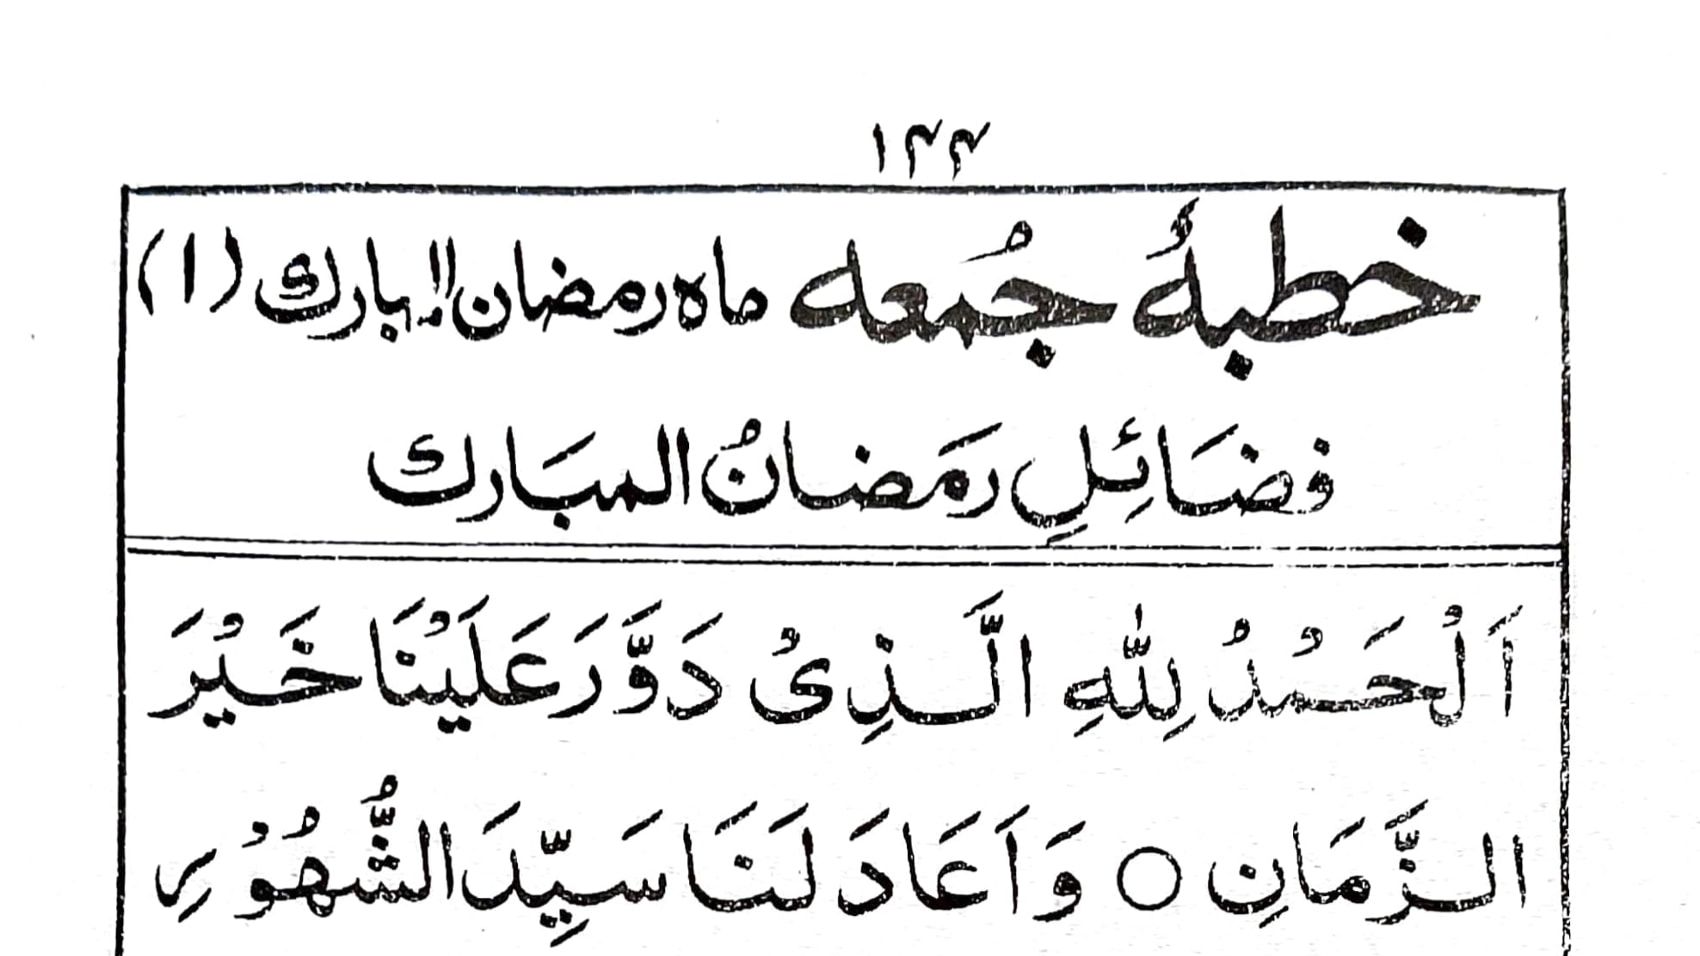 ۱۴۴
خطبۂ جُمعه ماه رمضان المبارك (۱)
فضَائِلِ رمَضانُ المبَارك
اَلْحَمْدُ لِلّٰهِ الَّذِىْ دَوَّرَ عَلَيْنَا خَيْرَ
الزَّمَانِ ○ وَاَعَادَ لَنَا سَيِّدَ الشُّهُوْرِ